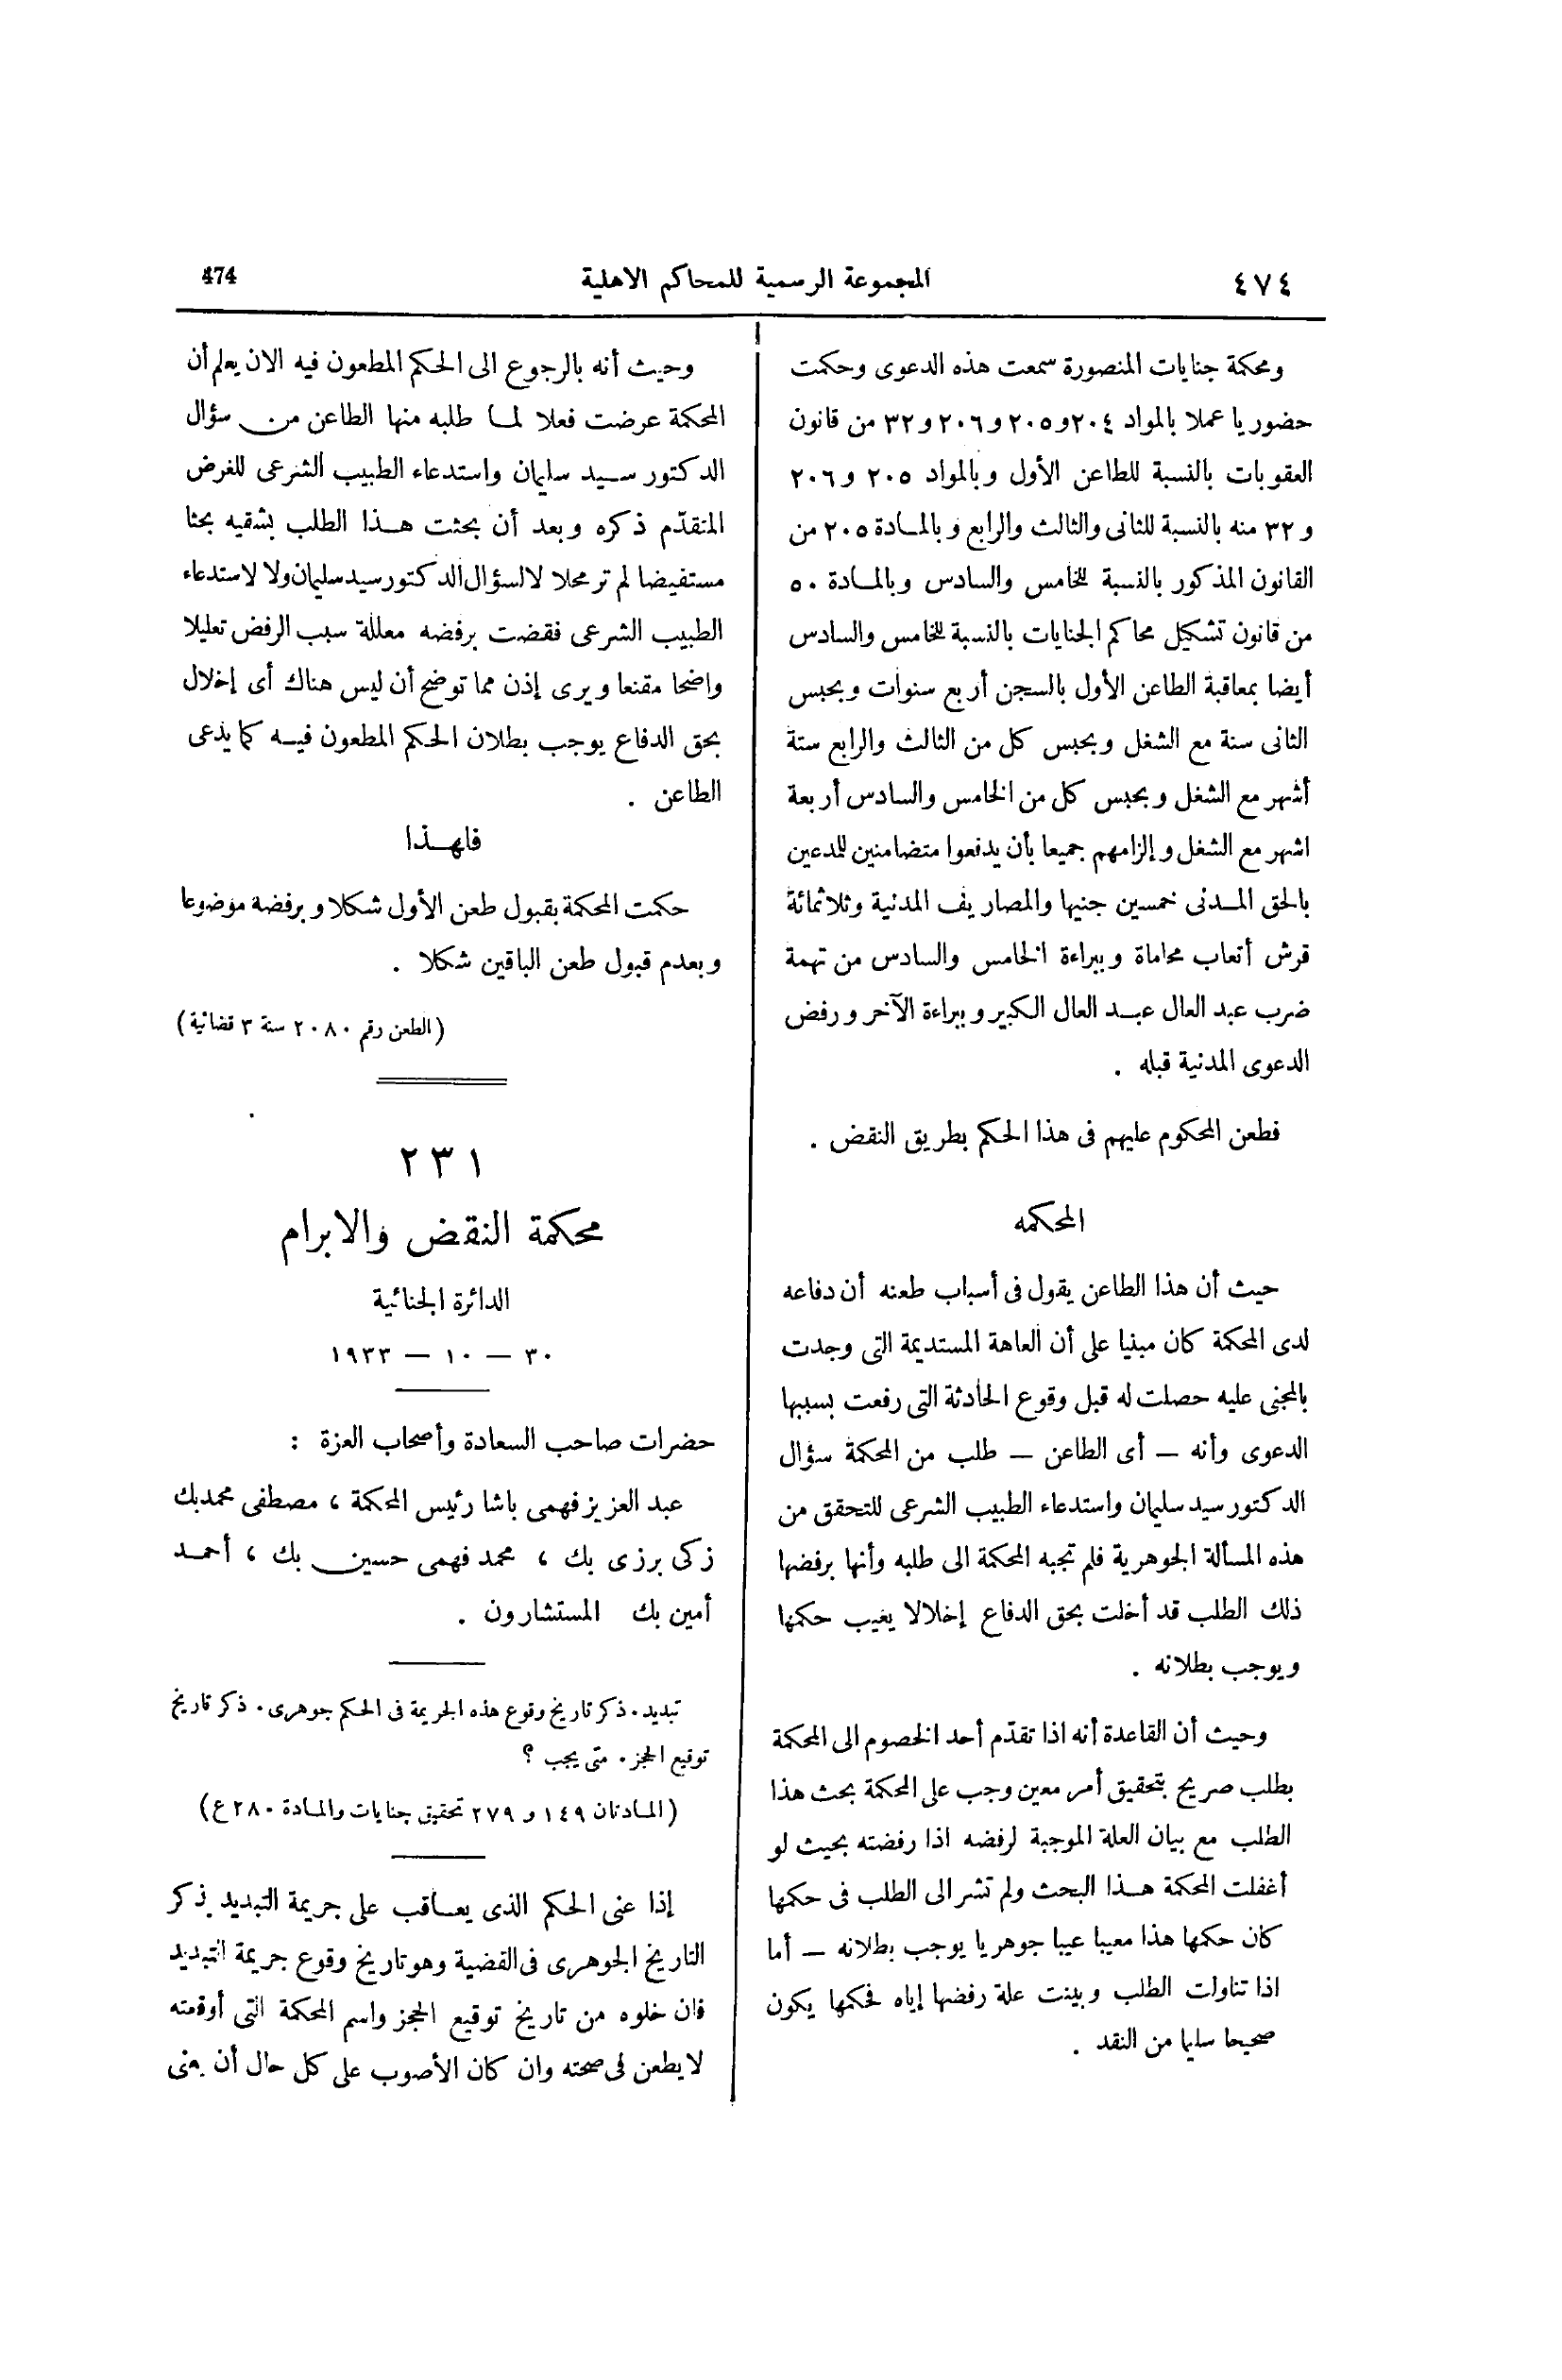 ٤٧٤
المجموعة الرسمية للمحاكم الاهلية
474
ومحكمة جنايات المنصورة سمعت هذه الدعوى وحكمت
حضوريا عملا بالمواد ٢٠٤ و٢٠٥ و٢٠٦ و٣٢ من قانون
العقوبات بالنسبة للطاعن الأول وبالمواد ٢٠٥ و٢٠٦
و ٣٢ منه بالنسبة للثانى والثالث والرابع وبالمادة ٢٠٥ من
القانون المذكور بالنسبة للخامس والسادس وبالمادة ٥٠
من قانون تشكيل محاكم الجنايات بالنسبة للخامس والسادس
أيضا بمعاقبة الطاعن الأول بالسجن أربع سنوات وبحبس
الثانى سنة مع الشغل وبحبس كل من الثالث والرابع ستة
أشهر مع الشغل وبحبس كل من الخامس والسادس أربعة
اشهر مع الشغل وإلزامهم جميعا بأن يدفعوا متضامنين للمدعين
بالحق المدنى خمسين جنيها والمصاريف المدنية وثلاثمائة
قرش أتعاب محاماة وببراءة الخامس والسادس من تهمة
ضرب عبد العال عبد العال الكبير وببراءة الآخر ورفض
الدعوى المدنية قبله .
فطعن المحكوم عليهم فى هذا الحكم بطريق النقض .
المحكمه
حيث أن هذا الطاعن يقول فى أسباب طعنه أن دفاعه
لدى المحكمة كان مبنيا على أن العاهة المستديمة التى وجدت
بالمجنى عليه حصلت له قبل وقوع الحادثة التى رفعت بسببها
الدعوى وأنه — أى الطاعن — طلب من المحكمة سؤال
الدكتور سيد سليمان واستدعاء الطبيب الشرعى للتحقق من
هذه المسألة الجوهرية فلم تجبه المحكمة الى طلبه وأنها برفضها
ذلك الطلب قد أخلت بحق الدفاع إخلالا يغيب حكمها
ويوجب بطلانه .
وحيث أن القاعدة أنه اذا تقدّم أحد الخصوم الى المحكمة
بطلب صريح بتحقيق أمر معين وجب على المحكمة بحث هذا
الطلب مع بيان العلة الموجبة لرفضه اذا رفضته بحيث لو
أغفلت المحكمة هذا البحث ولم تشر الى الطلب فى حكمها
كان حكمها هذا معيبا عيبا جوهريا يوجب بطلانه — أما
اذا تناولت الطلب وبينت علة رفضها إياه فحكمها يكون
صحيحا سليما من النقد .
وحيث أنه بالرجوع الى الحكم المطعون فيه الان يعلم أن
المحكمة عرضت فعلا لما طلبه منها الطاعن من سؤال
الدكتور سيد سليمان واستدعاء الطبيب الشرعى للغرض
المتقدّم ذكره وبعد أن بحثت هذا الطلب بشقيه بحثا
مستفيضا لم تر محلا لا لسؤال الدكتور سيد سليمان ولا لاستدعاء
الطبيب الشرعى فقضت برفضه معللة سبب الرفض تعليلا
واضحا مقنعا ويرى إذن مما توضح أن ليس هناك أى إخلال
بحق الدفاع يوجب بطلان الحكم المطعون فيه كما يدعى
الطاعن .
فلهذا
حكمت المحكمة بقبول طعن الأول شكلا وبرفضه موضوعا
وبعدم قبول طعن الباقين شكلا .
(الطعن رقم ٢٠٨٠ سنة ٣ قضائية)
٢٣١
محكمة النقض والابرام
الدائرة الجنائية
٣٠ — ١٠ — ١٩٣٣
حضرات صاحب السعادة وأصحاب العزة :
عبد العزيز فهمى باشا رئيس المحكمة ، مصطفى محمد بك
زكى برزى بك ، محمد فهمى حسين بك ، أحمد
أمين بك المستشارون .
تبديد . ذكر تاريخ وقوع هذه الجريمة فى الحكم جوهرى . ذكر تاريخ
توقيع الحجز . متى يجب ؟
(المادتان ١٤٩ و ٢٧٩ تحقيق جنايات والمادة ٢٨٠ ع)
إذا عنى الحكم الذى يعاقب على جريمة التبديد بذكر
التاريخ الجوهرى فى القضية وهو تاريخ وقوع جريمة التبديد
فان خلوه من تاريخ توقيع الحجز واسم المحكمة التى أوقعته
لا يطعن فى صحته وان كان الأصوب على كل حال أن يعنى